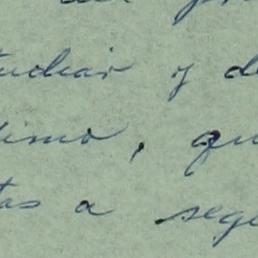 tudiar y d
timo, qu
tas a seg